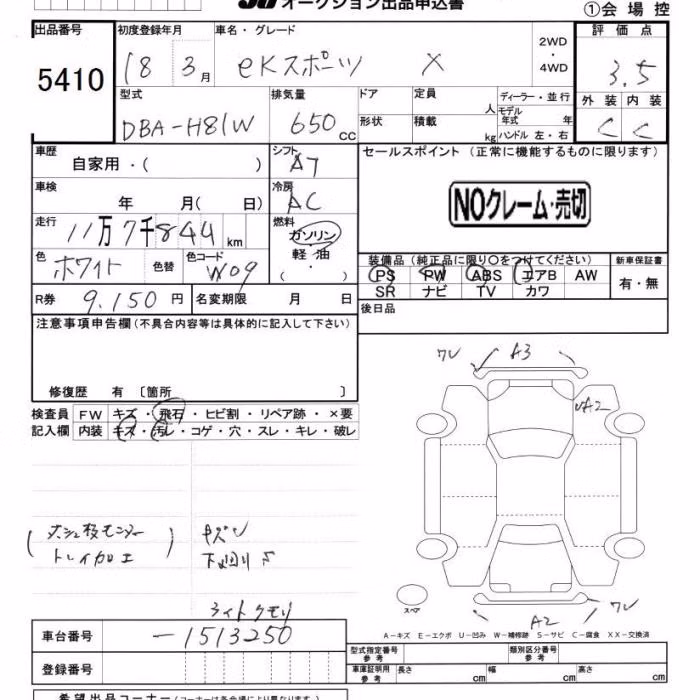 オークション出品申込書
①会場控
出品番号 初度登録年月 車名・グレード 2WD・4WD 評価点
5410 18 3月 eKスポーツ X 3.5
型式 排気量 ドア 定員 人 ディーラー・並行 外装 内装
DBA-H81W 650cc 形状 積載 kg モデル年式 年 ハンドル 左・右 C C
車歴 自家用・( ) シフト AT セールスポイント (正常に機能するものに限ります)
車検 年 月( 日) 冷房 AC
NOクレーム・売切
走行 11万7千844km 燃料 ガソリン 軽・油 ( ・ )
色 ホワイト 色替 色コード W09
装備品 (純正品に限り〇をつけてください) 新車保証書
PS PW ABS エアB AW 有・無
SR ナビ TV カワ
R券 9.150円 名変期限 月 日
後日品
注意事項申告欄(不具合内容等は具体的に記入して下さい)
ワレ A3
A2
修復歴 有 〔箇所 〕
検査員 FW キズ・飛石・ヒビ割・リペア跡・×要
記入欄 内装 キズ・汚レ・コゲ・穴・スレ・キレ・破レ
トレイカロエ
キズ
下回りS
ライトクモリ
スペア
A2 ワレ
A-キズ E-エクボ U-凹み W-補修跡 S-サビ C-腐食 XX-交換済
車台番号 -1513250
型式指定番号 参考 類別区分番号 参考
登録番号
車庫証明用 参考 長さ cm 幅 cm 高さ cm
希望出品コーナー(コーナーは各会場により異なります)